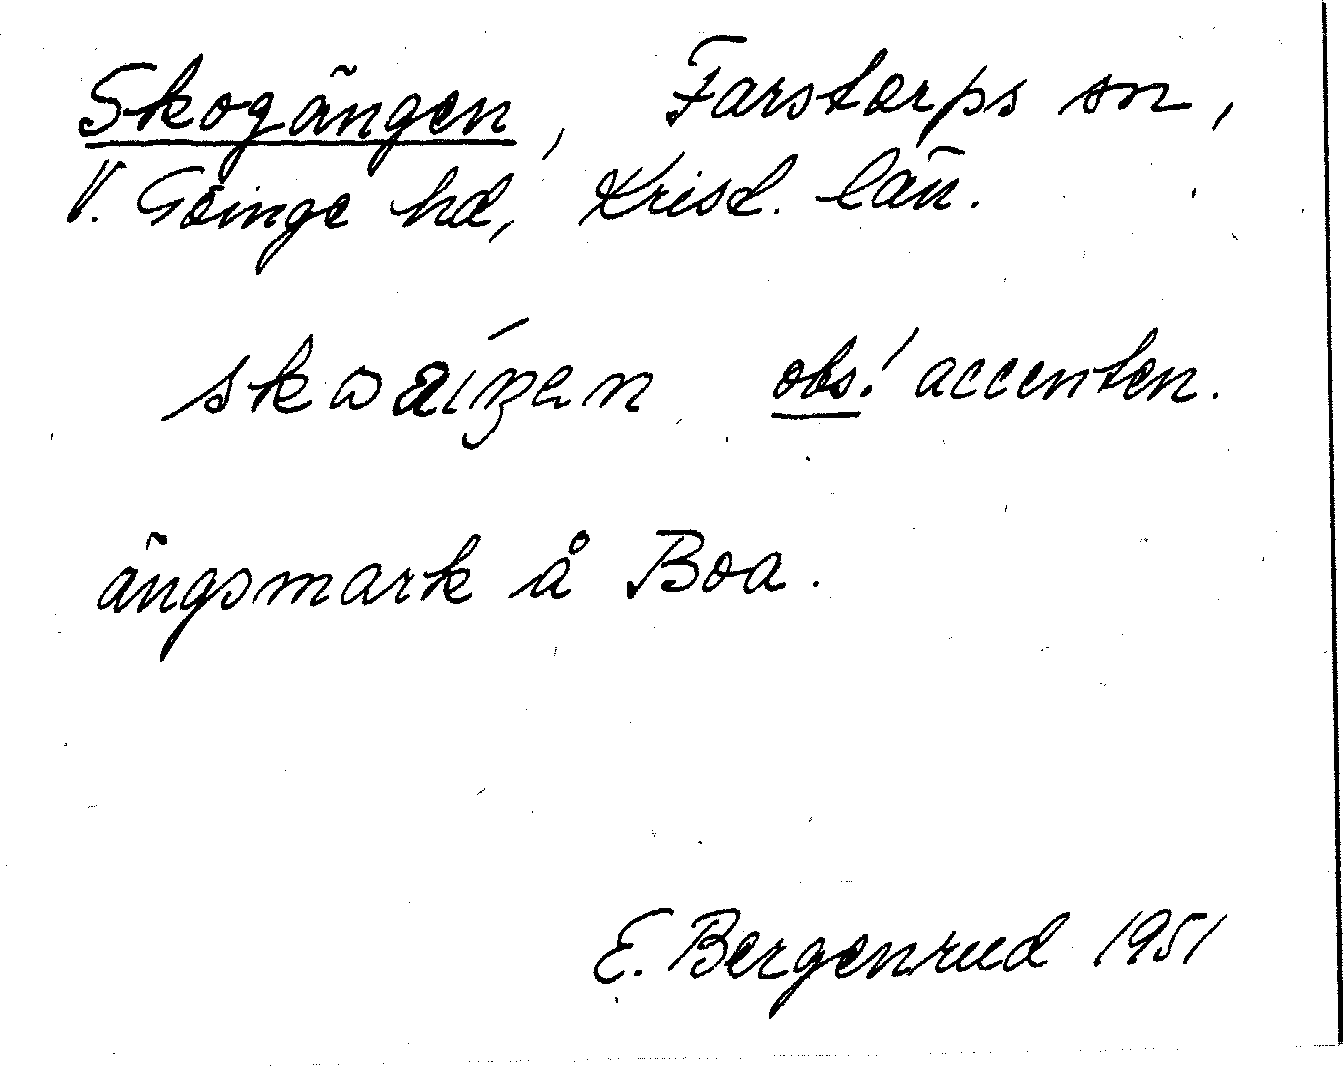 Skogängen, Farstorps sn,
V. Göinge hd, Krist. län.
obs! accenten.
ängsmark å Boa.
E. Bergenrud 1951